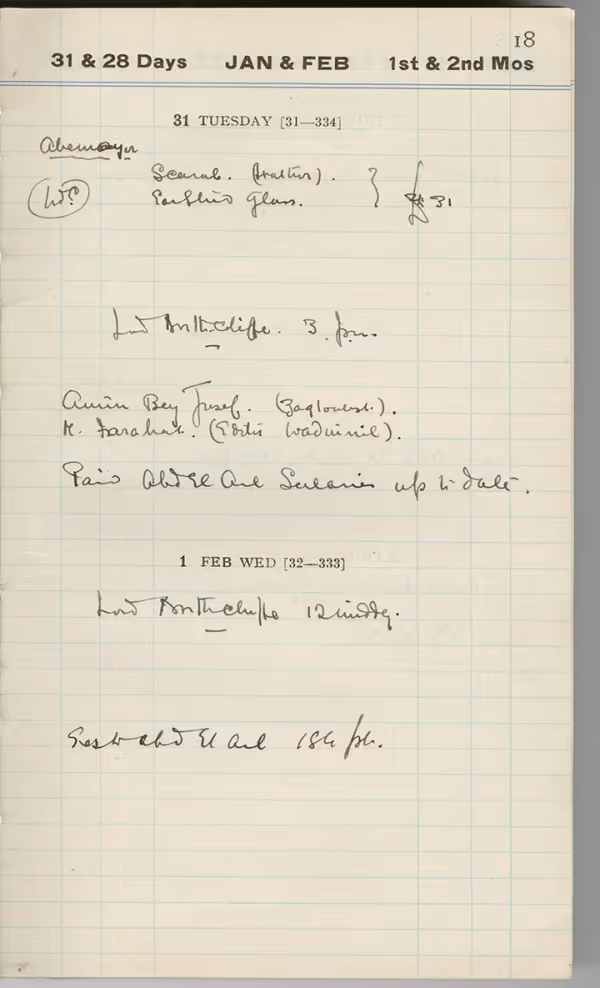 18
31 & 28 Days JAN & FEB 1st & 2nd Mos
31 TUESDAY [31—334]
Abemayor
Scarab.
Glass. £ 31
Lord Northcliffe. 3. pm.
Amin Bey Yusef. (Zagloulist.).
M. Farahat. (Editor Wadinnil).
Paid Abd El Aal Salaries up to date.
1 FEB WED [32—333]
Lord Northcliffe 12 midday.
Abd El Aal